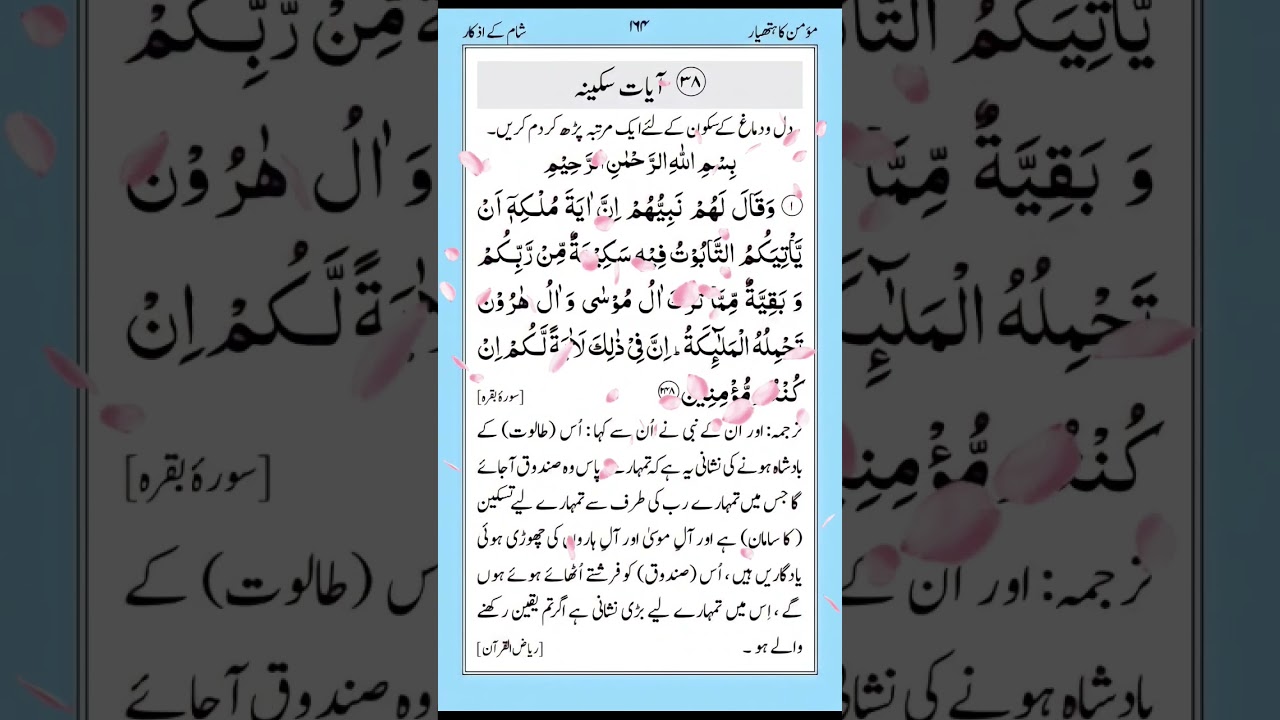 مؤمن کا ہتھیار ۱۶۴ شام کے اذکار
۳۸ آیات سکینہ
دل ودماغ کے سکون کے لئے ایک مرتبہ پڑھ کر دم کریں۔
بِسْمِ اللّٰهِ الرَّحْمٰنِ الرَّحِيْمِ
۱ وَقَالَ لَهُمْ نَبِيُّهُمْ اِنَّ اٰيَةَ مُلْكِهٖٓ اَنْ
يَّاْتِيَكُمُ التَّابُوْتُ فِيْهِ سَكِيْنَةٌ مِّنْ رَّبِّكُمْ
وَ بَقِيَّةٌ مِّمَّا تَرَكَ اٰلُ مُوْسٰى وَ اٰلُ هٰرُوْنَ
تَحْمِلُهُ الْمَلٰٓئِكَةُ ؕ اِنَّ فِيْ ذٰلِكَ لَاٰيَةً لَّكُمْ اِنْ
كُنْتُمْ مُّؤْمِنِيْنَ ۲۴۸ [سورۂ بقرہ]
ترجمہ: اور ان کے نبی نے اُن سے کہا: اُس (طالوت) کے
بادشاہ ہونے کی نشانی یہ ہے کہ تمہارے پاس وہ صندوق آجائے
گا جس میں تمہارے رب کی طرف سے تمہارے لیے تسکین
(کا سامان) ہے اور آلِ موسیٰ اور آلِ ہارون کی چھوڑی ہوئی
یادگاریں ہیں، اُس (صندوق) کو فرشتے اُٹھائے ہوئے ہوں
گے، اِس میں تمہارے لیے بڑی نشانی ہے اگر تم یقین رکھنے
والے ہو۔ [ریاض القرآن]